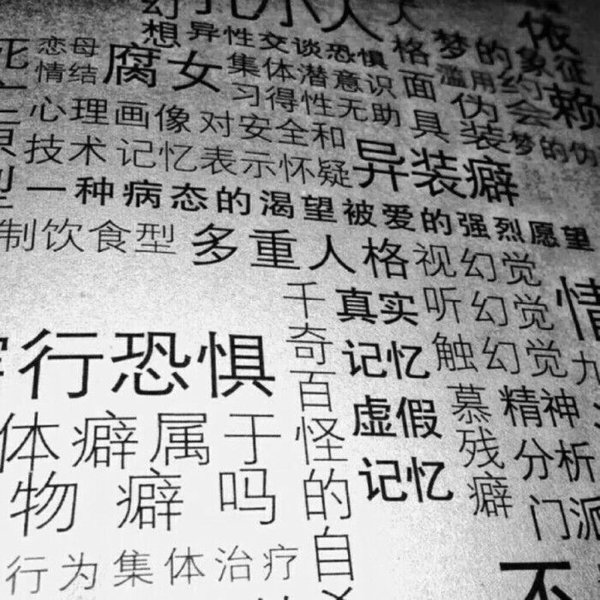 想 异性交谈恐惧
人格
梦的象征
恋母
情结
腐女
集体潜意识
习得性无助
面具
滥用
伪装
约会
依赖
心理画像 对安全和
梦的伪
技术 记忆表示怀疑
异装癖
一种病态的渴望被爱的强烈愿望
制饮食型
多重人格
视幻觉
听幻觉
触幻觉
千奇百怪的自
真实
记忆
虚假
记忆
行恐惧
慕残癖
精神
分析
门派
体癖属于
物癖 吗
行为集体治疗